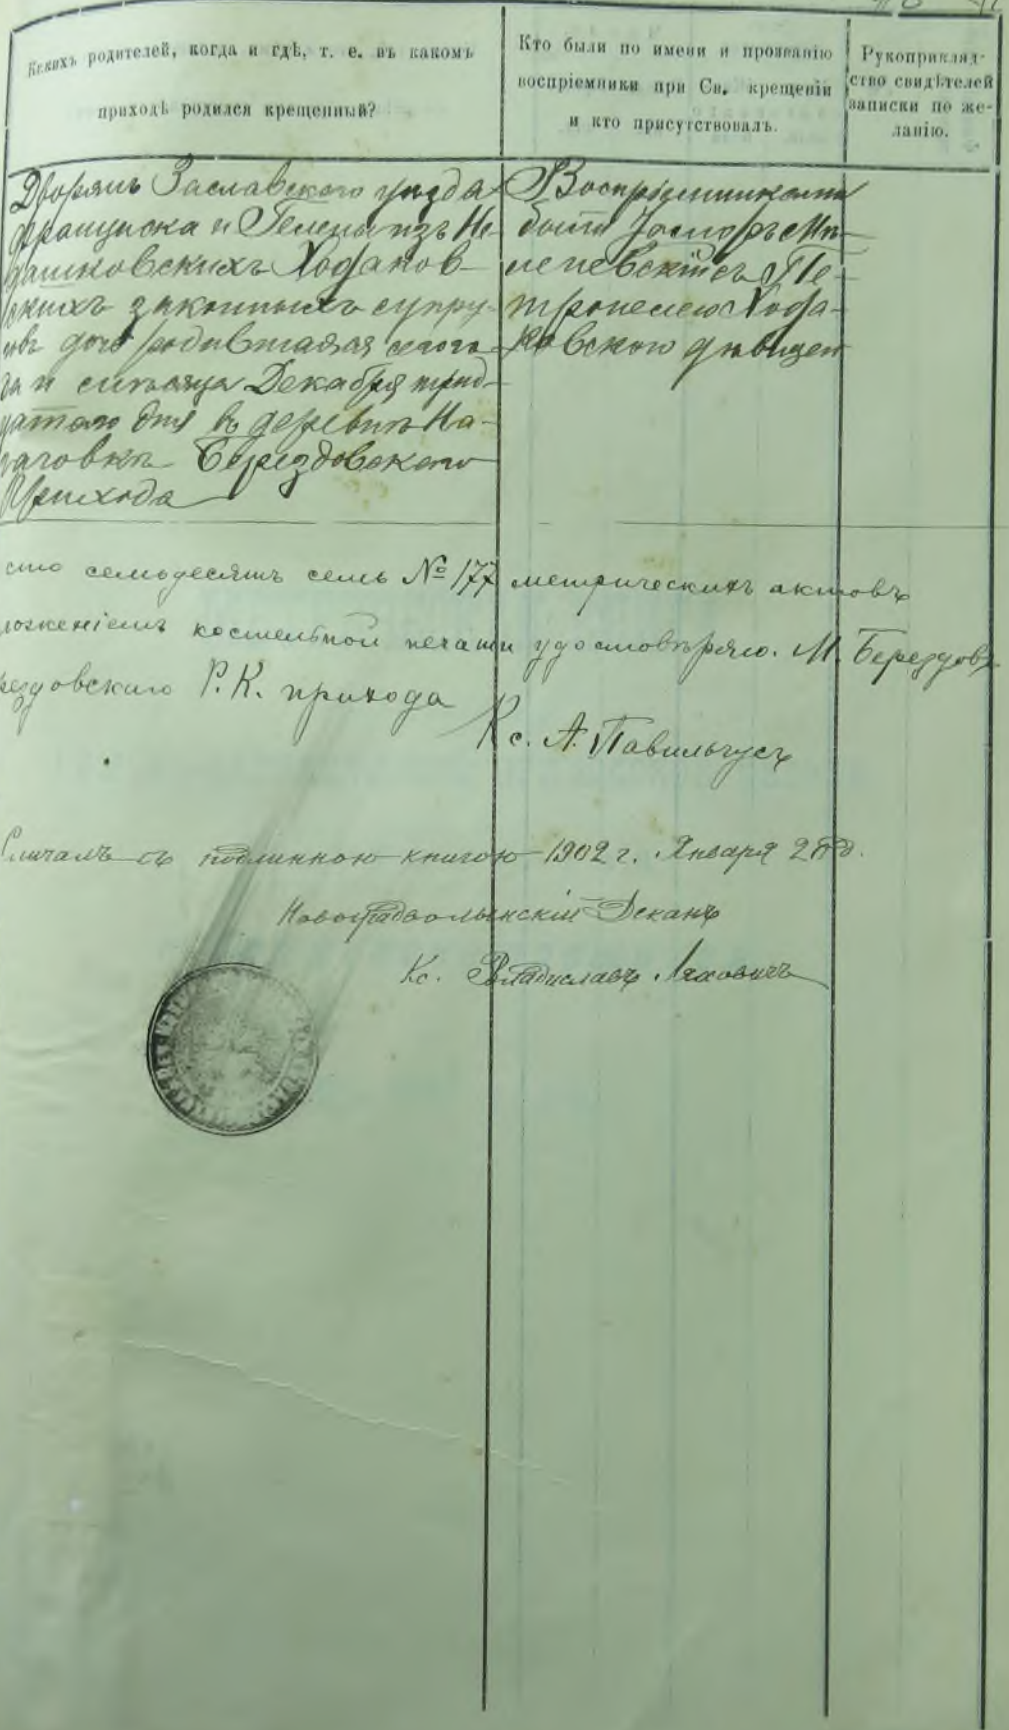 Какихъ родителей, когда и гдѣ, т. е. въ какомъ
приходѣ родился крещенный?
Кто были по имени и прозванію
воспріемники при Св. крещеніи
и кто присутствовалъ.
Рукоприклад-
ство свидѣтелей
записки по же-
ланію.
Дворянъ Заславскаго уѣзда
Франциска и Гелены изъ Не-
дашковскихъ Ходаков-
скихъ законныхъ супру-
говъ дочь родившаяся сего го-
да и мѣсяца Декабря трид-
цатаго дня въ деревнѣ
Берездовскаго
Прихода
Воспріемниками
были
съ Пе-
тронелею Хода-
ковскою дѣвицею
сто семьдесятъ семь № 177 метрическихъ актовъ
ложеніемъ костельной печати удостовѣряю. М. Берездовъ
рездовскаго Р. К. прихода
Кс. А. Павильчусъ
Сличалъ съ подлинною книгою 1902 г. Января 2 д.
Новоградволынскій Деканъ
Кс. Владиславъ Ляховичъ